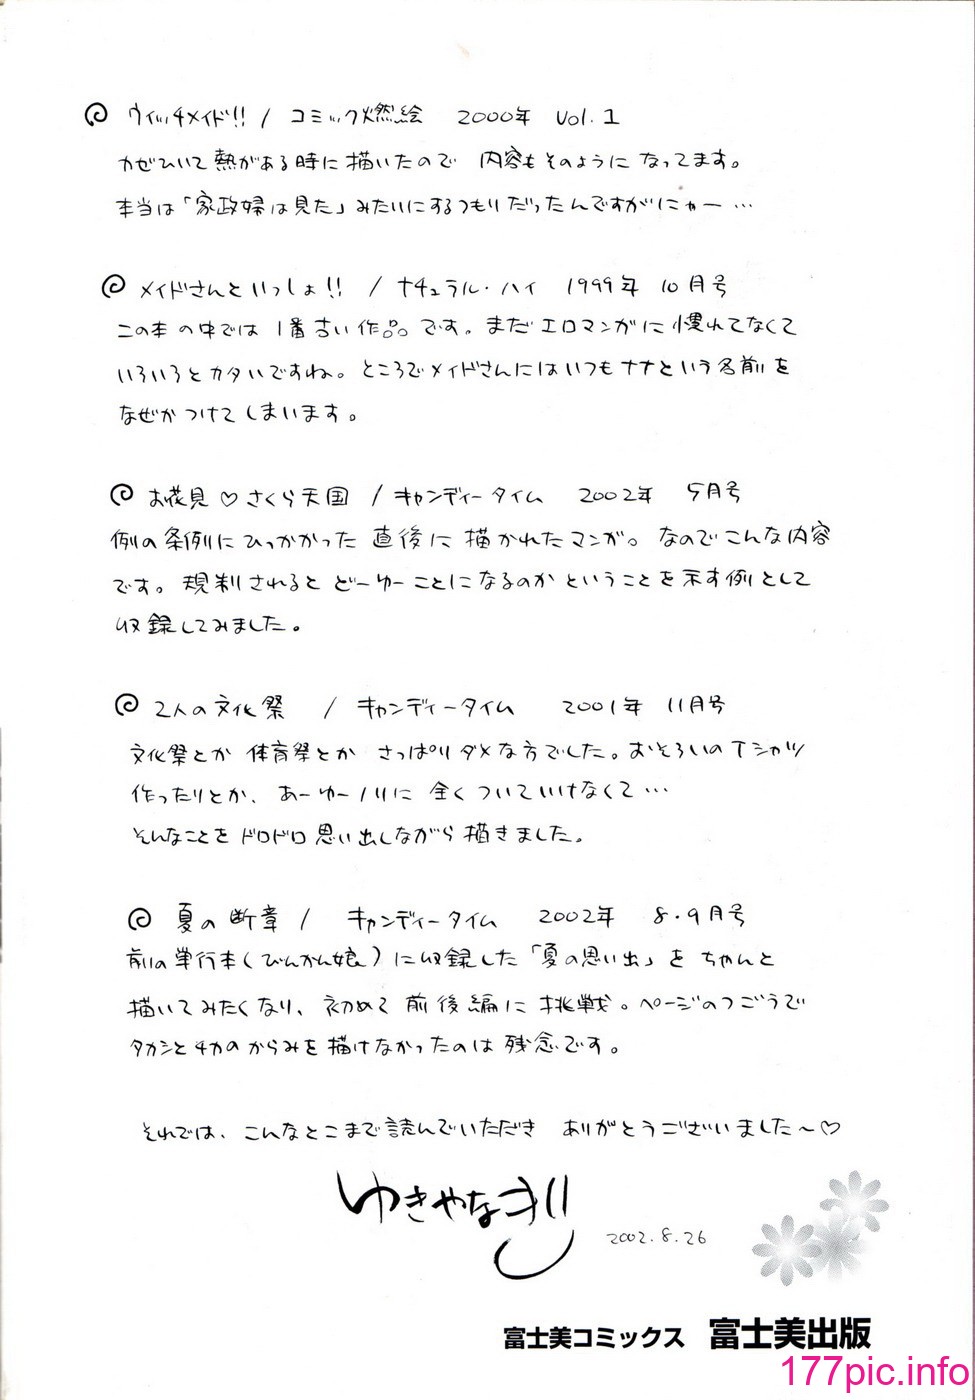 ウィッチメイド!! / コミック燃絵 2000年 Vol.1
カゼひいて熱がある時に描いたので 内容もそのようになってます。
本当は「家政婦は見た」みたいにするつもりだったんですがにゃー…
メイドさんといっしょ!! / ナチュラル・ハイ 1999年 10月号
この本の中では 1番古い作品です。まだエロマンガに慣れてなくて
いろいろとカタいですね。ところでメイドさんにはいつもナナという名前を
なぜかつけてしまいます。
お花見♡さくら天国 / キャンディータイム 2002年 5月号
例の条例にひっかかった直後に描かれたマンガ。なのでこんな内容
です。規制されるとどーゆーことになるのかということを示す例として
収録してみました。
2人の文化祭 / キャンディータイム 2001年 11月号
文化祭とか体育祭とか さっぱりダメな方でした。おそろいのTシャツ
作ったりとか、あーゆーノリに全くついていけなくて…
そんなことをドロドロ思い出しながら描きました。
夏の断章 / キャンディータイム 2002年 8・9月号
前の単行本(びんかん娘)に収録した「夏の思い出」をちゃんと
描いてみたくなり、初めて前後編に挑戦。ページのつごうで
タカシとチカのからみを描けなかったのは残念です。
それでは、こんなとこまで読んでいただき ありがとうございました〜♡
ゆきやなぎ
2002.8.26
富士美コミックス 富士美出版
177pic.info